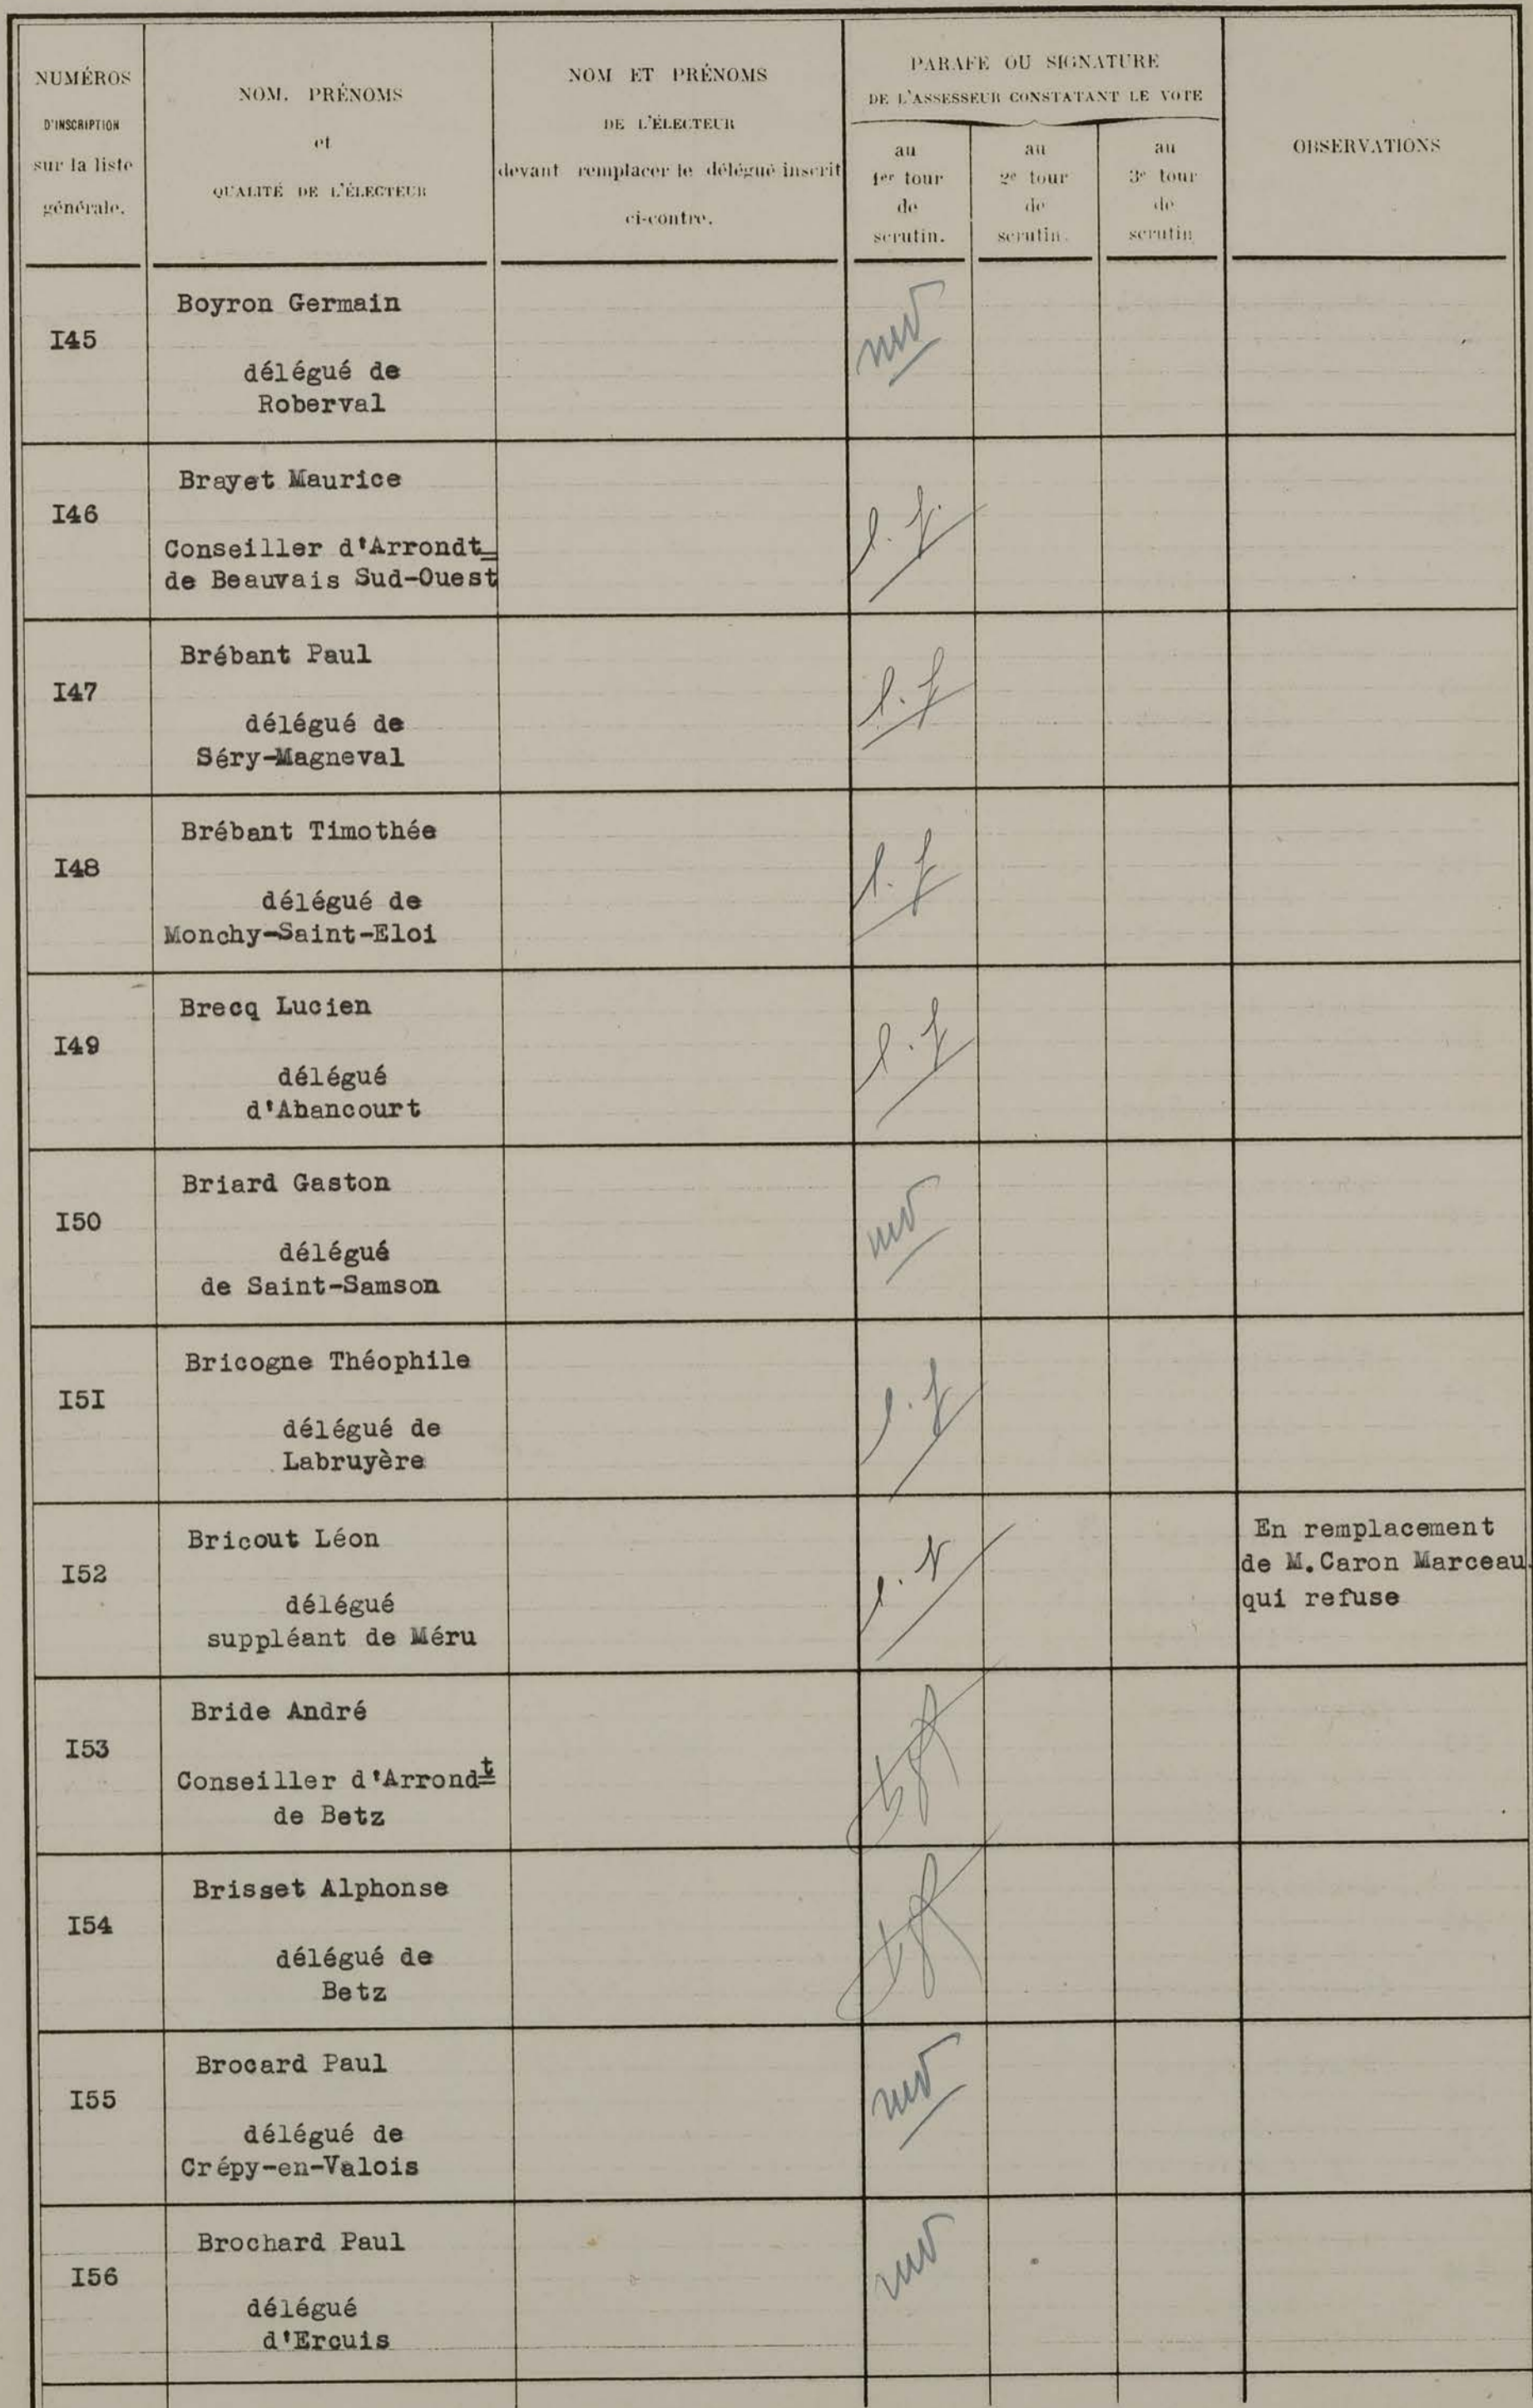 NUMÉROS
D'INSCRIPTION
sur la liste
générale.
NOM. PRÉNOMS
et
QUALITÉ DE L'ÉLECTEUR
NOM ET PRÉNOMS
DE L'ÉLECTEUR
devant remplacer le délégué inscrit
ci-contre.
PARAFE OU SIGNATURE
DE L'ASSESSEUR CONSTATANT LE VOTE
au
1er tour
de
scrutin.
au
2e tour
de
scrutin.
au
3e tour
de
scrutin
OBSERVATIONS
I45
Boyron Germain
délégué de
Roberval
I46
Brayet Maurice
Conseiller d'Arrondt
de Beauvais Sud-Ouest
I47
Brébant Paul
délégué de
Séry-Magneval
I48
Brébant Timothée
délégué de
Monchy-Saint-Eloi
I49
Brecq Lucien
délégué
d'Abancourt
I50
Briard Gaston
délégué
de Saint-Samson
I5I
Bricogne Théophile
délégué de
Labruyère
I52
Bricout Léon
délégué
suppléant de Méru
En remplacement
de M.Caron Marceau
qui refuse
I53
Bride André
Conseiller d'Arrondt
de Betz
I54
Brisset Alphonse
délégué de
Betz
I55
Brocard Paul
délégué de
Crépy-en-Valois
I56
Brochard Paul
délégué
d'Ercuis